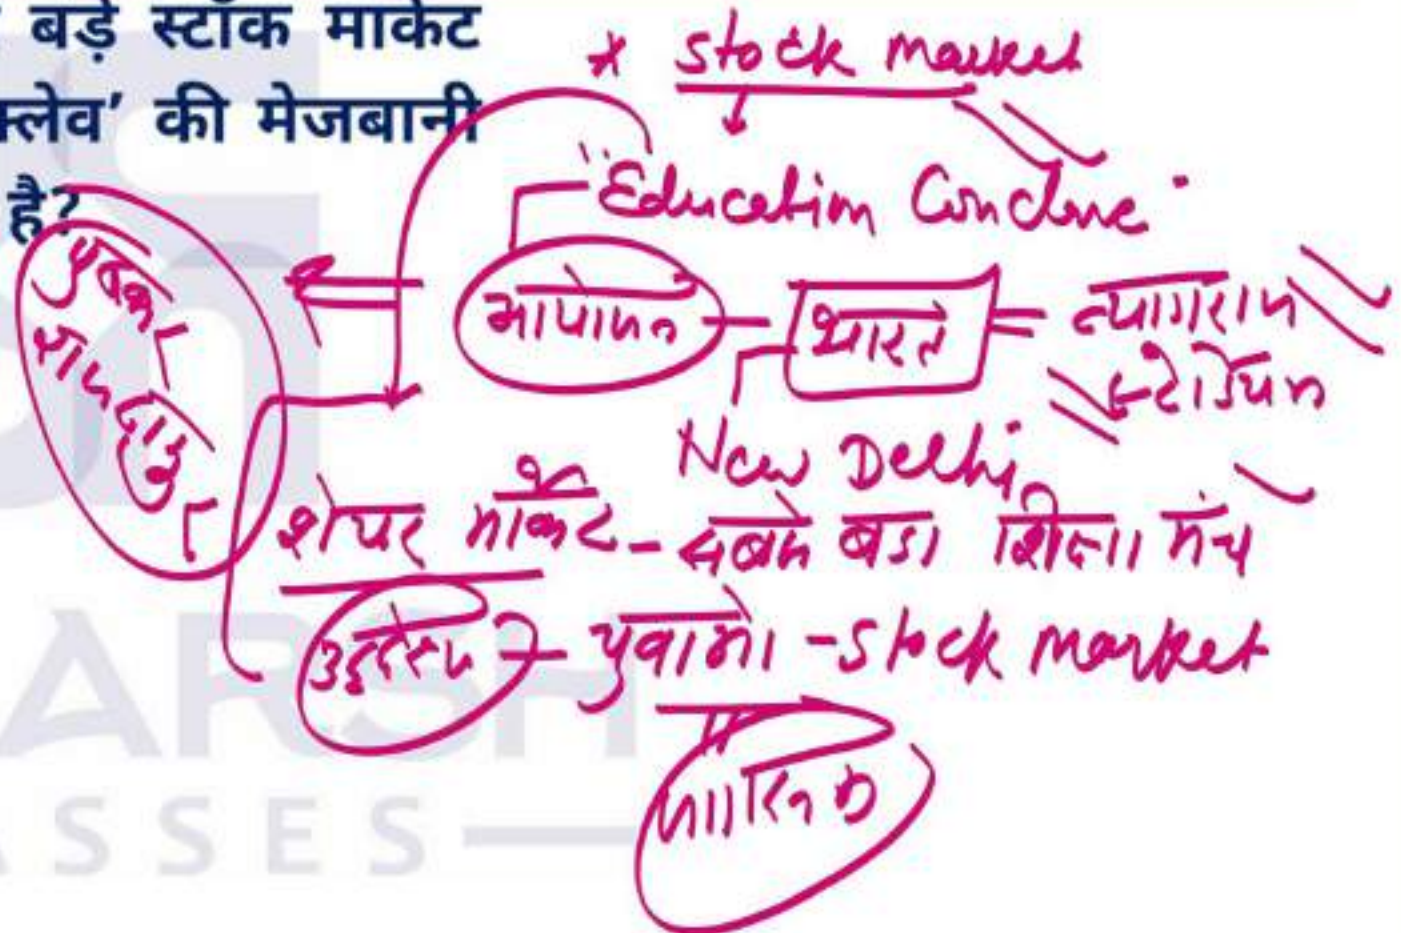 बड़े स्टॉक मार्केट
क्लेव’ की मेजबानी
है?
* stock market
"Education Conclave"
आयोजन - भारत = त्यागराज
स्टेडियम
New Delhi
शेयर मार्केट - सबसे बडा शिक्षा मंच
उद्देश्य - युवाओ - stock market
ARSH
ASSES